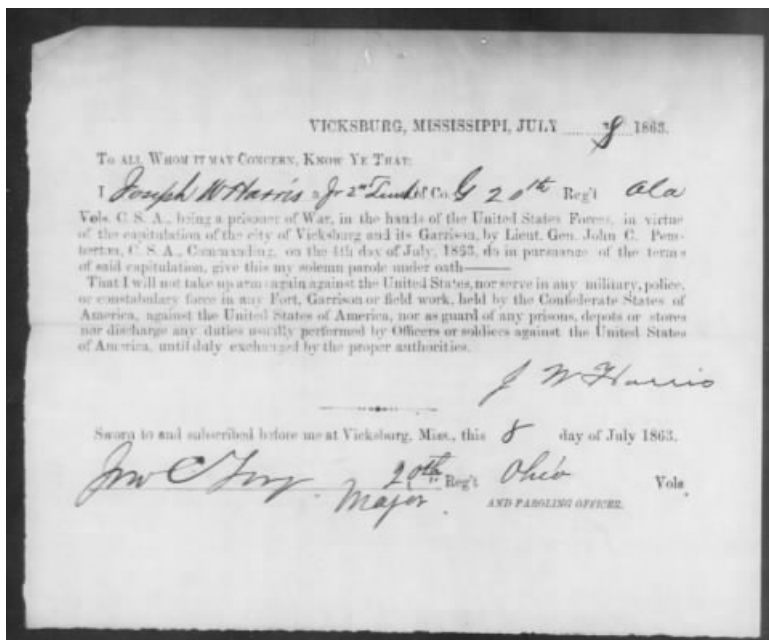 VICKSBURG, MISSISSIPPI, JULY 8 1863.
TO ALL WHOM IT MAY CONCERN, KNOW YE THAT:
I Joseph W Harris a Jr 2nd Lieut of Co. G 20th Reg't Ala
Vols. C. S. A., being a prisoner of War, in the hands of the United States Forces, in virtue
of the capitulation of the city of Vicksburg and its Garrison, by Lieut. Gen. John C. Pem-
berton, C. S. A., Commanding, on the 4th day of July, 1863, do in pursuance of the terms
of said capitulation, give this my solemn parole under oath——
That I will not take up arms again against the United States, nor serve in any military, police,
or constabulary force in any Fort, Garrison or field work, held by the Confederate States of
America, against the United States of America, nor as guard of any prisons, depots or stores
nor discharge any duties usually performed by Officers or soldiers against the United States
of America, until duly exchanged by the proper authorities.
J W Harris
Sworn to and subscribed before me at Vicksburg, Miss., this 8 day of July 1863.
Jno C Fry 20th Reg't Ohio Vols
Major AND PAROLING OFFICER.